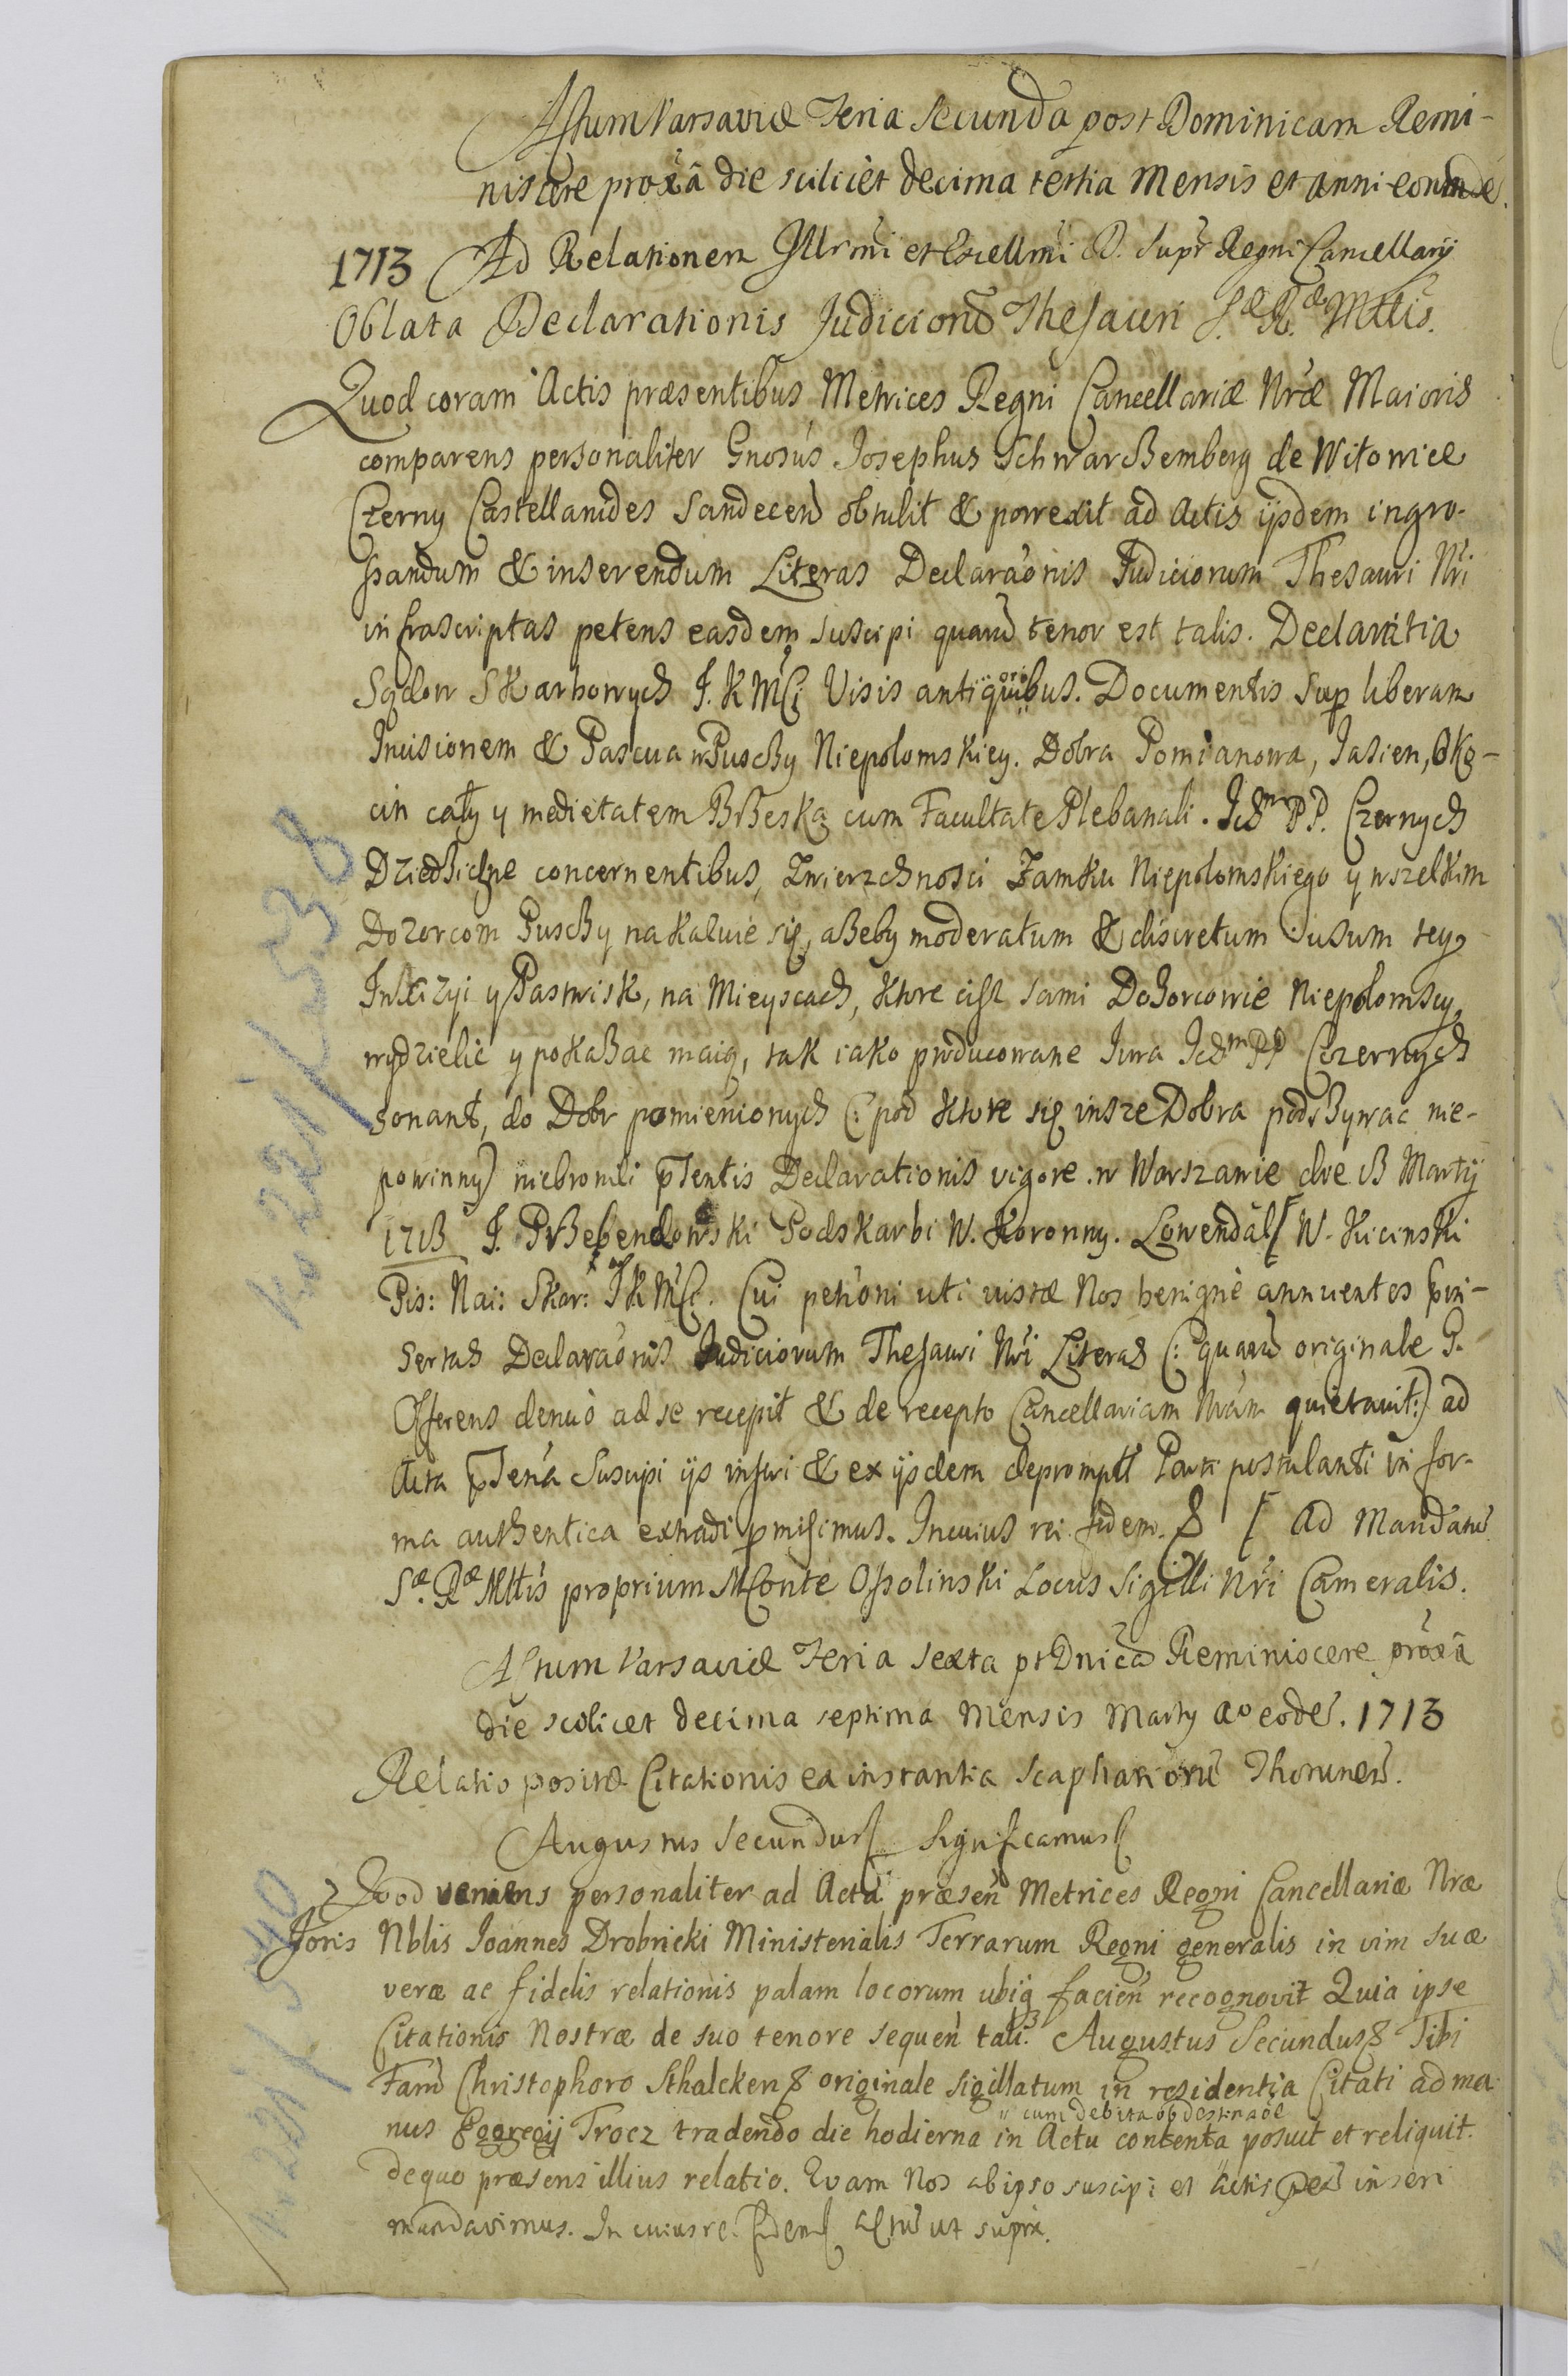 Actum Varsaviæ Feria Secunda post Dominicam Remi-
niscere prox̃ã die scilicèt decima tertia Mensis et anni eorunde͂.
1713 Ad Relationem Illrmi et Excellmi D. Supr Regni Cancellarij
Oblata Declarationis Judiciorũ Thesauri S. R. Mttis.
Quod coram Actis præsentibus Metrices Regni Cancellariæ Nræ Maioris
comparens personaliter Gnosus Josephus SchwarBemberg de Witowice
Czerny Castellanides Sandecen obtulit & porrexit ad Actis ijsdem ingro-
ssandum & inserendum Literas Declaraonis Judiciorum Thesauri Nri
infrascriptas petens easdem suscipi quarũ tenor est talis. Declaratia
Sądow Skarbowych J. K Mci Visis antiquioribus. Documentis Sup liberam
Incisionem & Pascua w Puschy Niepolomskiey. Dobra Pomianowa, Jasien, Oko-
cin cały y medietatem BrBeska cum Facultate Plebanali. Ichm PP. Czernych
DziedBiczne concernentibus, Zwierzchnosci Zamku Niepolomskiego y wszelkim
Dozorcom Puschy nakazuie się, aBeby moderatum & discretum usum tey
Inscizyi y Pastwisk, na Mieyscach, ktore ciss sami DoBorcowie Niepolomscy,
wydzielic y pokaBac maią, tak iako producowane Iura Ichm PP Czernych
sonant, do Dobr pomienionych (: pod ktore się insze Dobra podsBywac nie-
powinny) niebronili pntis Declarationis vigore. w Warszawie die 13 Martij
1713 J. PrBebendowski Podskarbi W. Koronny. Lowendal W. Kicinski
Pis: Nai: Skar: J K Mc. Cui petioni uti iustæ Nos benignè annuentes pin-
sertas Declaraonis Judiciorum Thesauri Nri Literas (: quarũ originale J.
Offerens denuò ad se recepit & de recepto Cancellariam Nram quietavit:) ad
Acta pntia Suscipi ijs inseri & ex ijsdem deprompti Parti postulanti in for-
ma authentica extradi pmisimus. In cuius rei fidem. Ad Mandatũ
Sæ. Ræ Mttis proprium M Conte Ossolinski Locus Sigilli Nri Cameralis.
Actum Varsaviæ Feria Sexta pt Dnicã Reminiscere prox̃ã
die scilicet decima septima Mensis Martij Ao eode͂. 1713
Relatio positæ Citationis ex instantia Scaphariorũ Thorunen.
Augustus Secundus Significamus
Quod veniens personaliter ad Acta præsen Metrices Regni Cancellariæ Nræ
Joris Nblis Joannes Drobnicki Ministerialis Terrarum Regni generalis in vim suæ
veræ ac fidelis relationis palam locorum ubiq facien recognovit Quia ipse
Citationis Nostræ de suo tenore sequen tali. Augustus Secundus Tibi
Fam Christophoro Sthalcken originale sigillatum in residentia Citati ad ma-
cum debita obdestinaoe
nus Egregij Trocz tradendo die hodierna in Actu contenta posuit et reliquit.
de quo præsens illius relatio. Quam Nos ab ipso suscipi et Actis inseri
mandavimus. In cuius rei fidem Actũ ut supra.